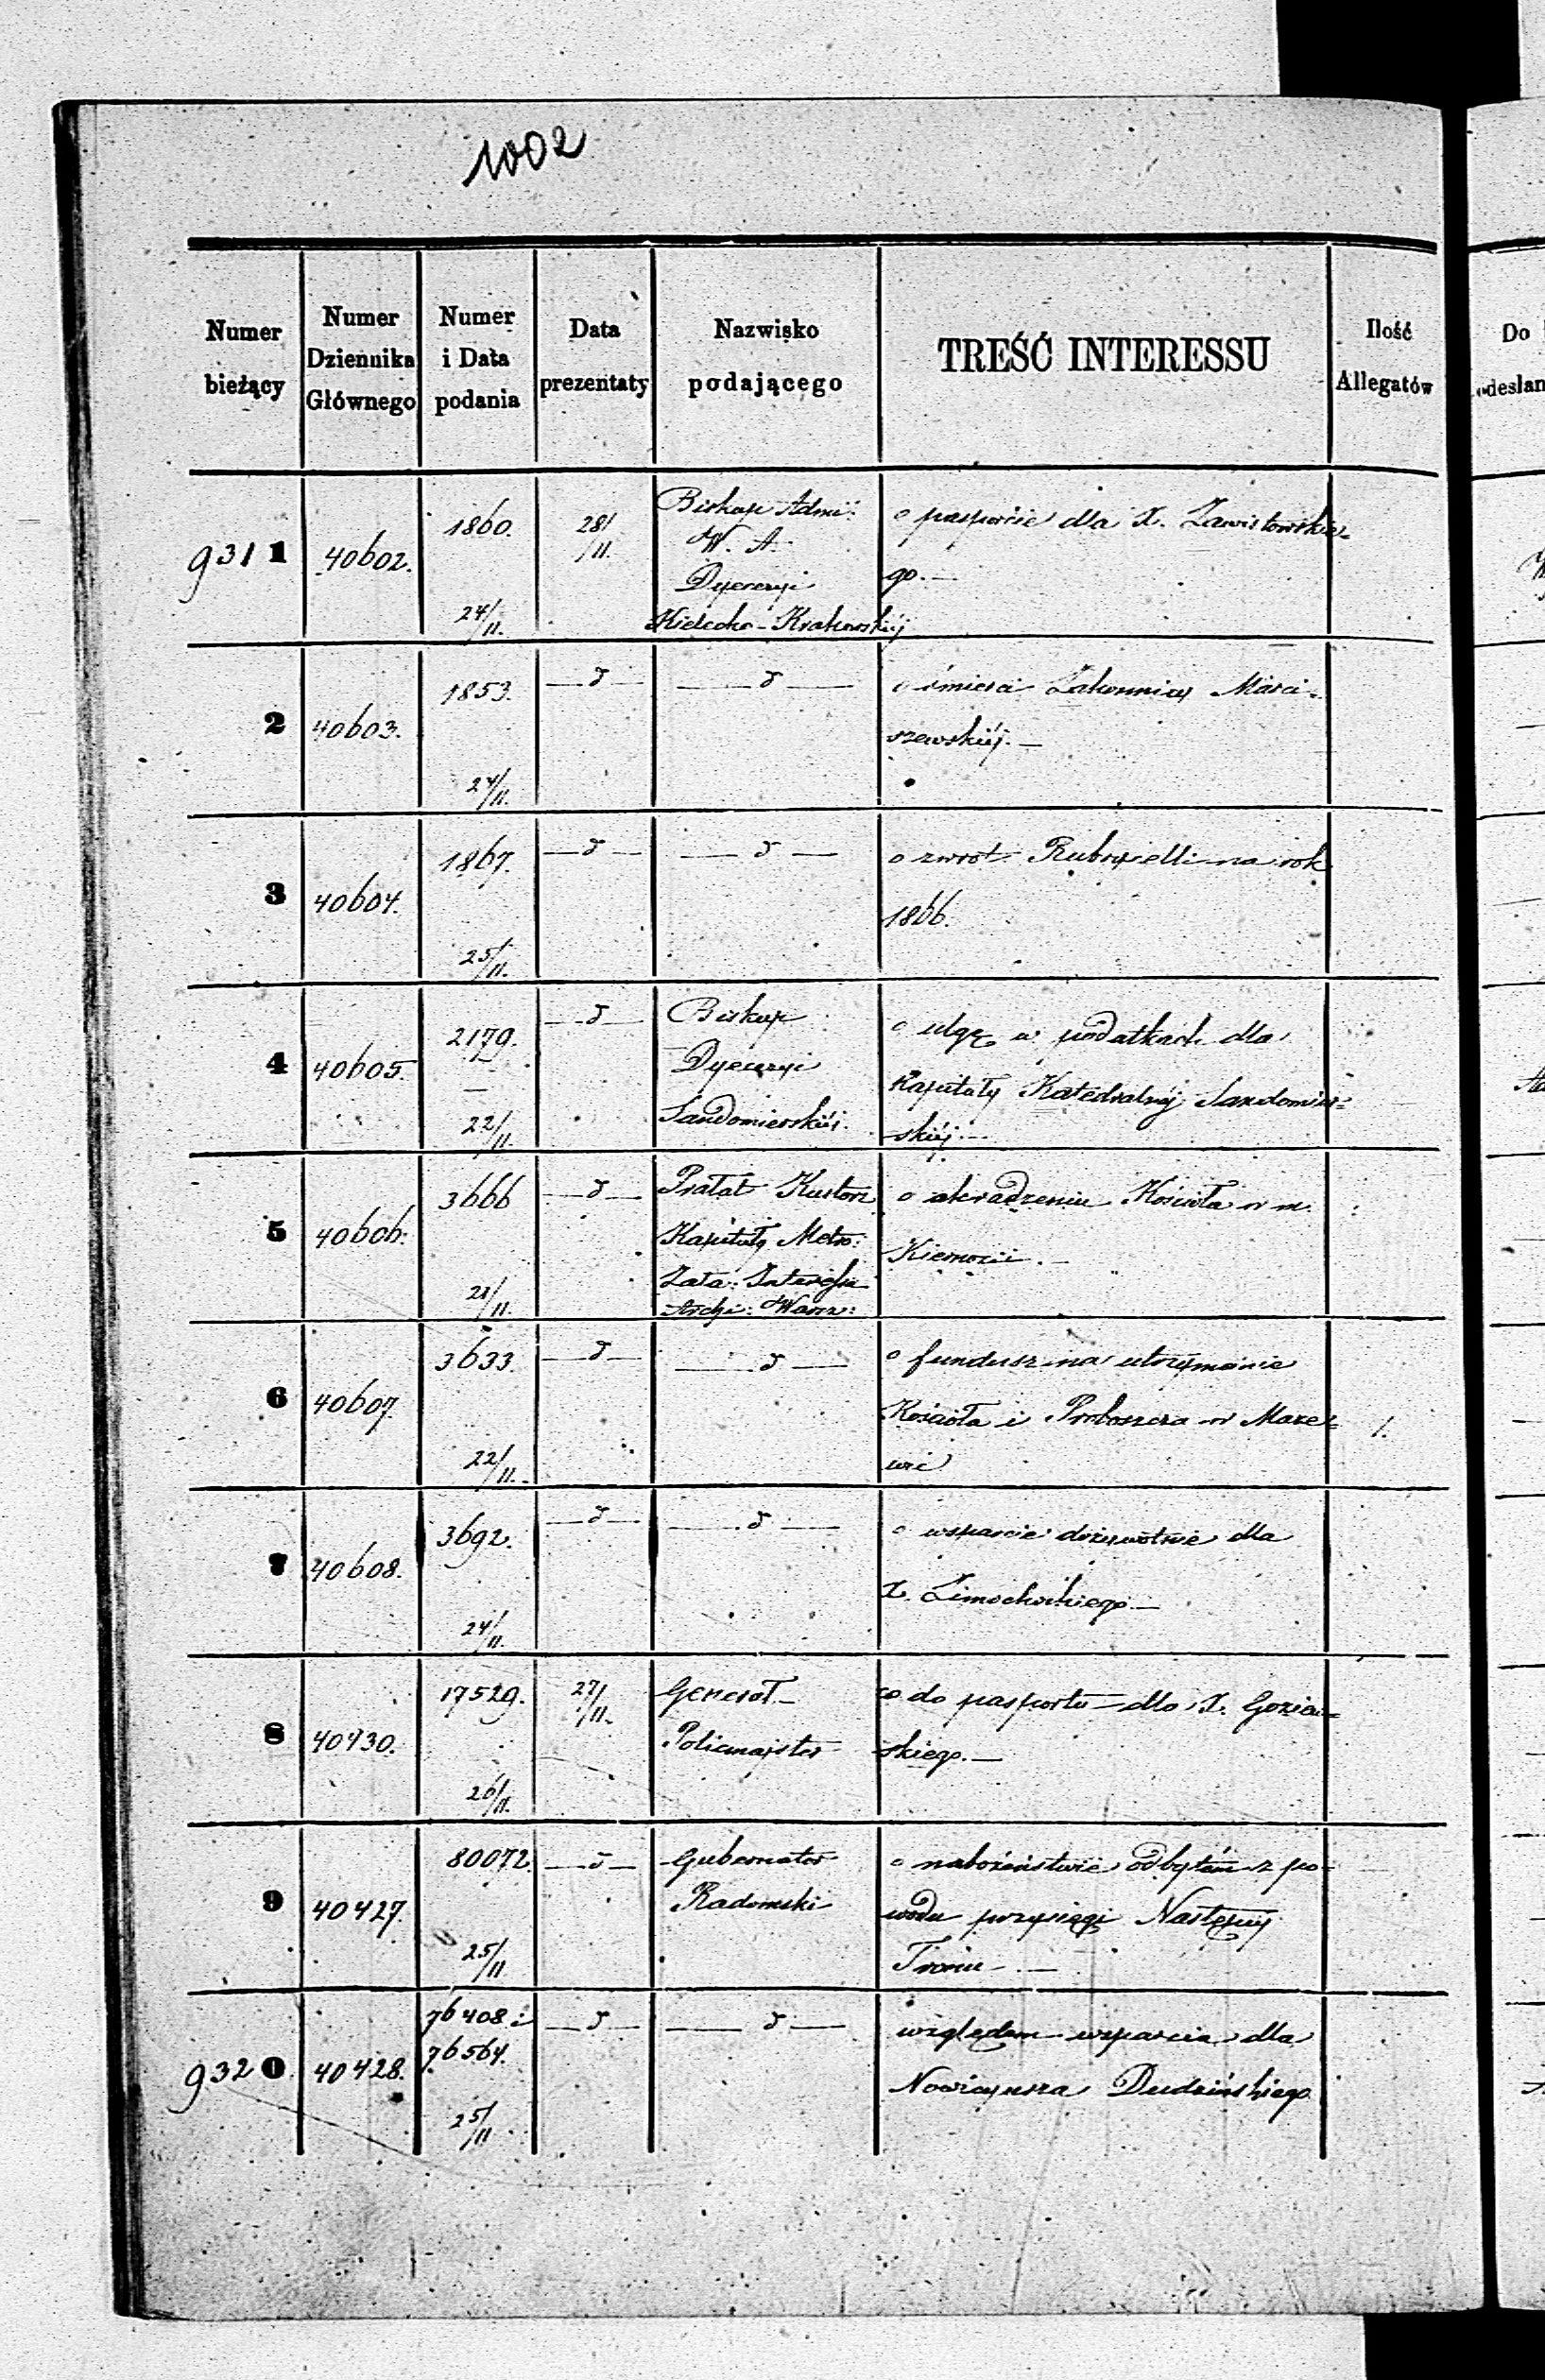 1002
Numer bieżący
Numer Dziennika Głównego
Numer i Data podania
Data prezentaty
Nazwisko podającego
TREŚĆ INTERESSU
Ilość Allegatów
Do
odesłan
9311
40602.
1860.
24/11.
28/11.
Biskup Admi:
W. A.
Dyecezyi
Kielecko-Krakowskiéj
o pasporcie dla X. Zawistowskie-
go.—
2
40603.
1853.
24/11.
—d—
—d—
o śmierci Zakonnicy Marci-
szewskiéj.—
3
40604.
1867.
25/11.
—d—
—d—
o zwrot Rubrycelli na rok
1866.
4
40605.
2179.
22/11.
—d—
Biskup
Dyecezyi
Sandomierskiéj.
o ulgę w podatkach dla
Kapituły Katedralnéj Sandomier-
skiéj.—
5
40606.
3666
21/11.
—d—
Prałat Kustosz
Kapituły Metro:
Zała: Interessa
Archi: Warsz:
o okradzeniu Kościoła w m.
Kiernozi.—
6
40607.
3633.
22/11.
—d—
—d—
o fundusz na utrzymanie
Kościoła i Proboszcza w
1.
7
40608.
3692.
24/11.
—d—
—d—
o wsparcie dożywotnie dla
X. Zimochockiego.—
8
40430.
17529.
26/11.
27/11.
Generał-
Policmajster
co do pasportu dla X.
skiego.—
9
40427.
80072.
25/11
—d—
Gubernator
Radomski
o nabożeństwie odbytém z po-
wodu przysięgi Następcy
Tronu.—
9320
40428.
76408 i
76564.
25/11
—d—
—d—
względem wsparcia dla
Nowicyusza Dudzińskiego